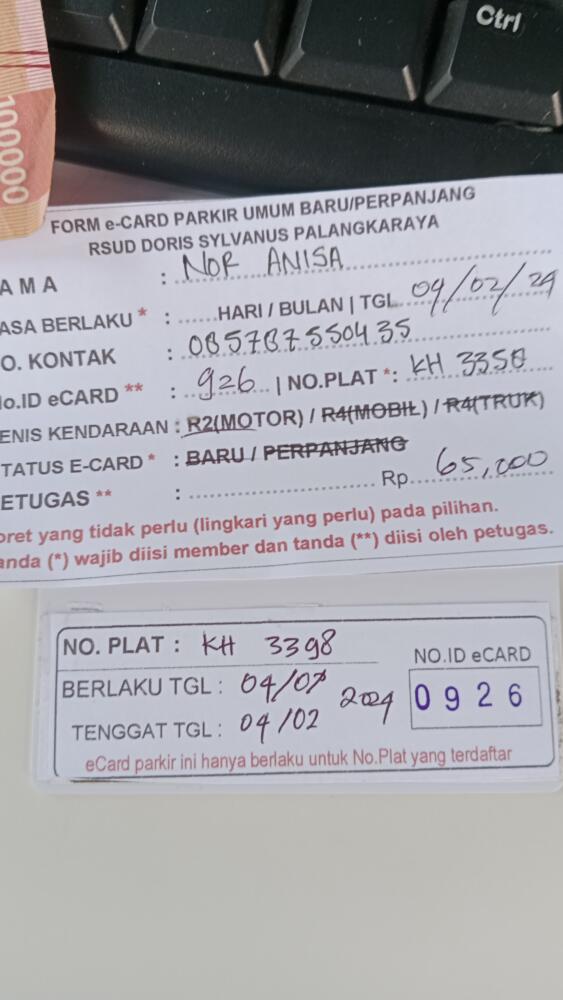 Ctrl
100000
FORM e-CARD PARKIR UMUM BARU/PERPANJANG
RSUD DORIS SYLVANUS PALANGKARAYA
AMA : NOR ANISA
ASA BERLAKU * : ......HARI / BULAN | TGL 04/02/24
O. KONTAK : 085787550435
No.ID eCARD ** : 926 | NO.PLAT *: KH 3350
ENIS KENDARAAN : R2(MOTOR) / R4(MOBIL) / R4(TRUK)
TATUS E-CARD * : BARU / PERPANJANG
ETUGAS ** : .................... Rp. 65,000
oret yang tidak perlu (lingkari yang perlu) pada pilihan.
anda (*) wajib diisi member dan tanda (**) diisi oleh petugas.
NO. PLAT : KH 3398
NO.ID eCARD
BERLAKU TGL : 04/01
2024
0926
TENGGAT TGL : 04/02
eCard parkir ini hanya berlaku untuk No.Plat yang terdaftar